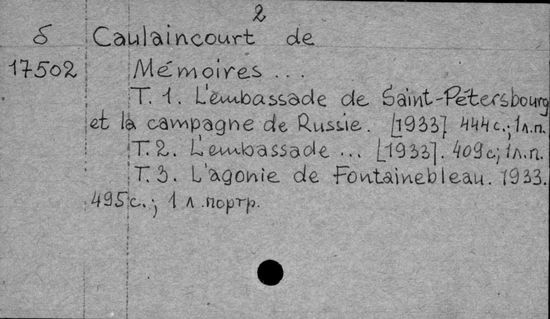 2
б Caulaincourt de
17502 Mémoires ...
T. 1. L'embassade de Saint-Pétersbourg
et la campagne de Russie. [1933] 444 с.; 1 л.п.
T. 2. L'embassade ... [1933]. 409 с; 1 л.п.
T. 3. L'agonie de Fontainebleau. 1933.
495 с.; 1 л. портр.